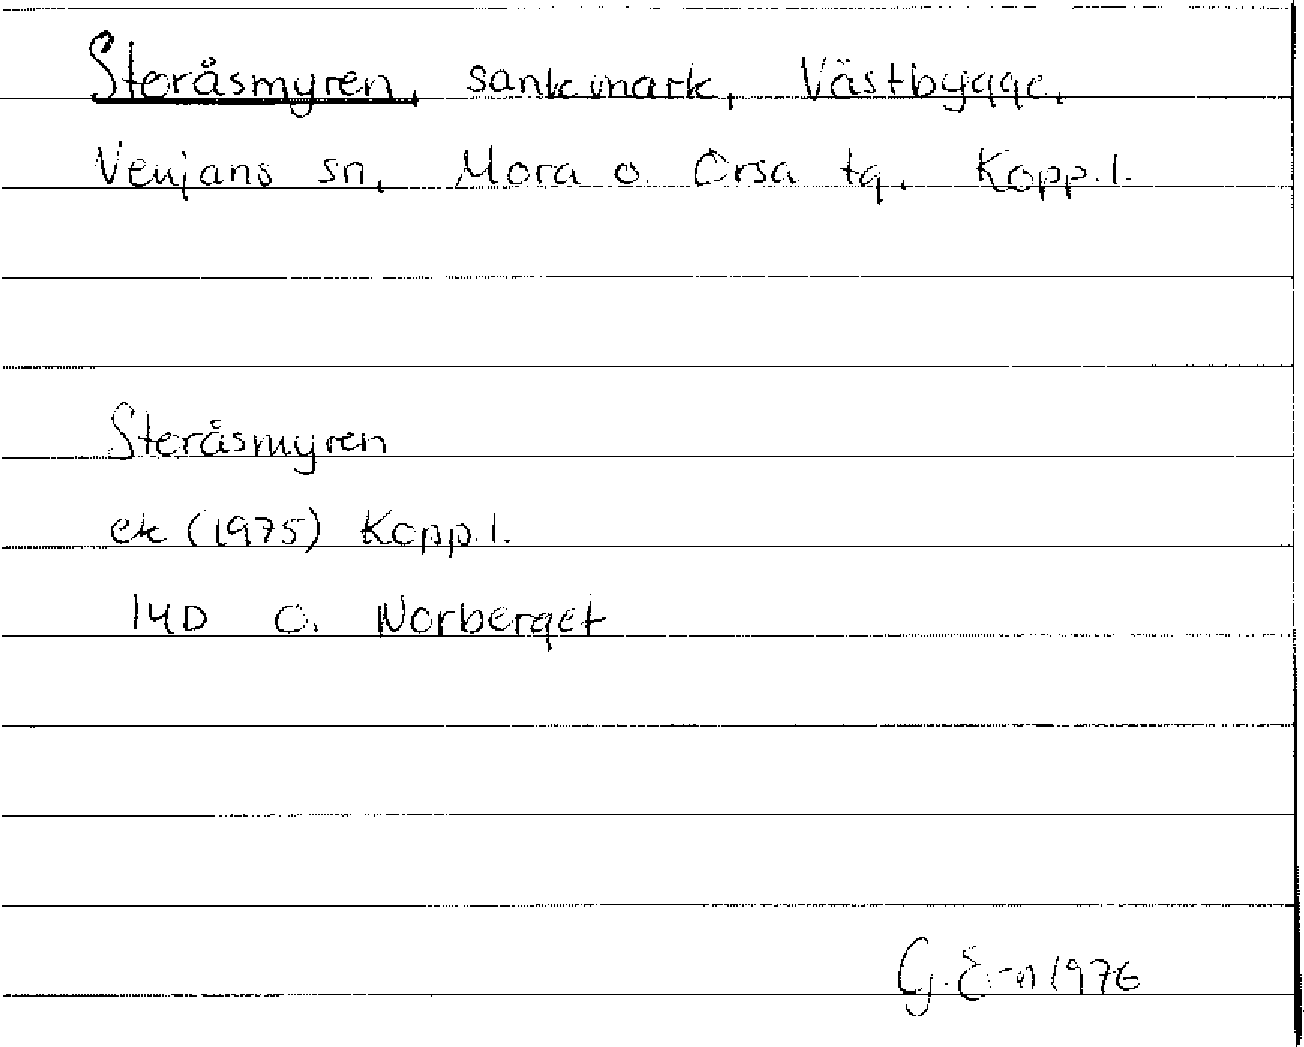 Storåsmyren, sankmark, Västbygge,
Venjans sn, Mora o. Orsa tg. Kopp. l.
Storåsmyren
ek (1975) Kopp. l.
14D O. Norberget
G. E-n 1976